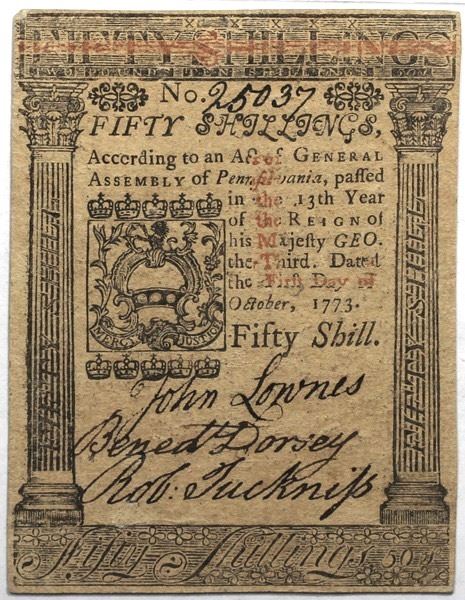 FIFTY SHILLINGS
No. 25037
FIFTY SHILLINGS,
According to an Act of GENERAL
ASSEMBLY of Pennſylvania, paſſed
in the 13th Year
of the REIGN of
his Majeſty GEO.
the Third. Dated
the Firſt Day of
October, 1773.
MERCY JUSTICE
Fifty Shill.
John Lownes
Bened Dorsey
Rob: Tuckniſs
Fifty Shillings 50s
FIFTY SHILLINGS
FIFTY SHILLINGS